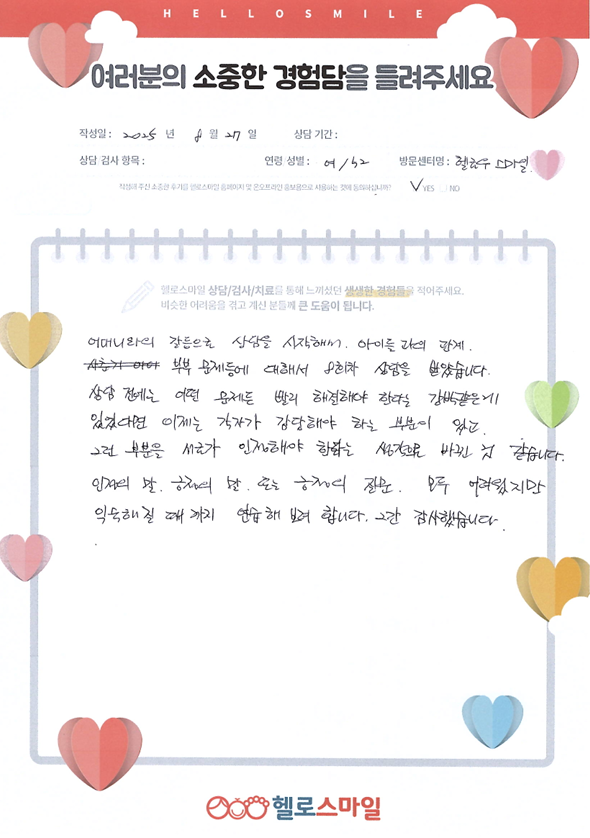 HELLOSMILE
여러분의 소중한 경험담을 들려주세요
작성일 : 2025 년 8 월 27 일 상담 기간 :
상담 검사 항목 : 연령 성별 : 여/52 방문센터명 : 헬로우 스마일.
작성해 주신 소중한 후기를 헬로스마일 홈페이지 및 온오프라인 홍보물으로 사용하는 것에 동의하십니까? ✓YES □NO
헬로스마일 상담/검사/치료를 통해 느끼셨던 생생한 경험들을 적어주세요.
비슷한 어려움을 겪고 계신 분들께 큰 도움이 됩니다.
어머니와의 갈등으로 상담을 시작해서. 아이들과의 관계.
부부 문제등에 대해서 8회차 상담을 받았습니다.
상담 전에는 어떤 문제든 빨리 해결해야 한다는 강박같은게
있었다면 이제는 각자가 감당해야 하는 부분이 있고.
그런 부분을 서로가 인정해야 한다는 생각으로 바뀐 것 같습니다.
인정의 말. 긍정의 말. 또는 긍정의 질문. 모두 어려웠지만
익숙해질 때까지 연습해 보려 합니다. 그간 감사했습니다.
헬로스마일